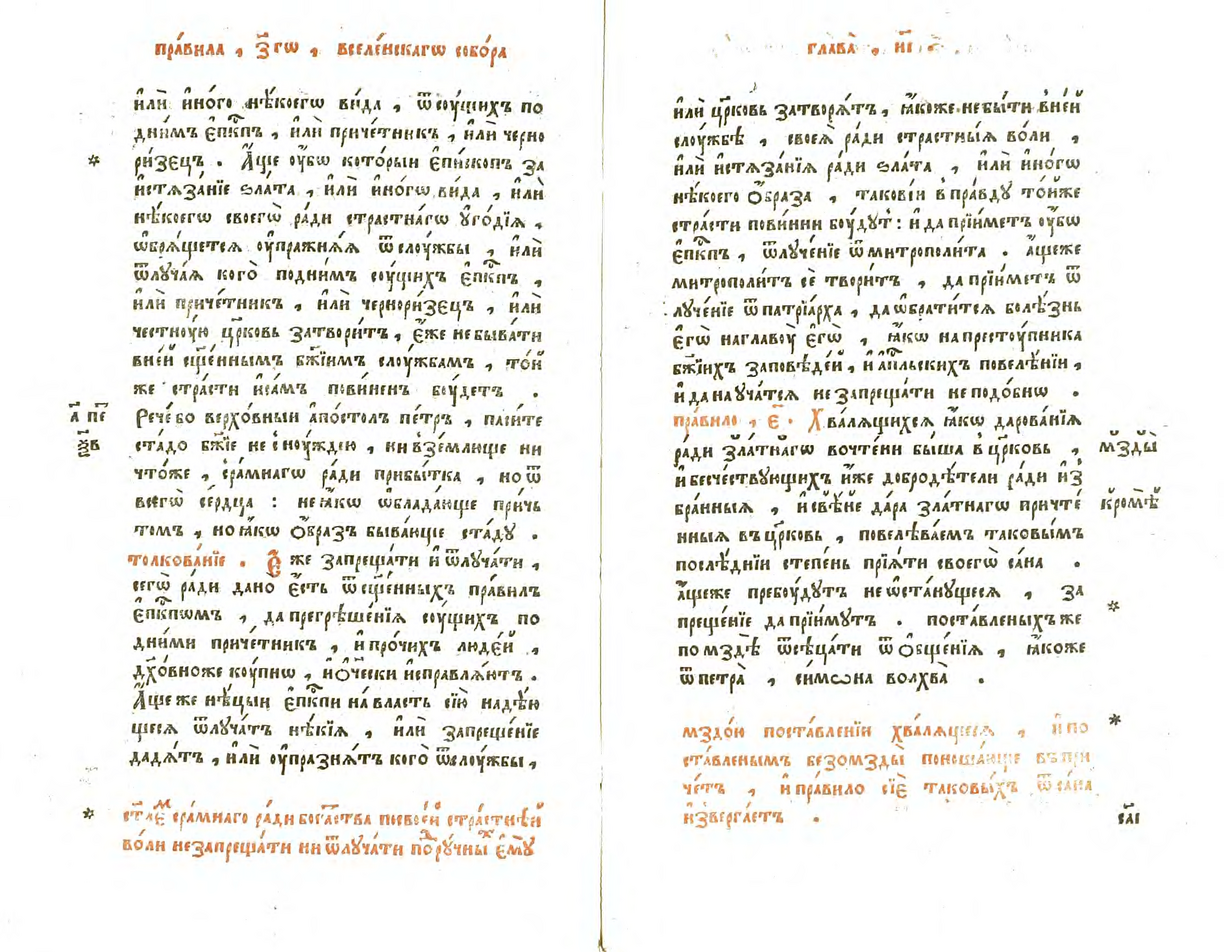 пра́вила , з҃гѡ , вселе́нскагѡ собо́ра
и҆лѝ и҆но́го нѣ́коегѡ ви́да , ѿсоу́щихъ по
дни́мъ є҆пк҇пъ , и҆лѝ приче́тникъ , и҆лѝ черно
ри́зецъ . А҆́ще оу҆́бѡ кото́рыи є҆пи́скопъ за
и҆стѧза́нїе ѕла́та , и҆лѝ и҆но́гѡ ви́да , и҆лѝ
нѣ́коегѡ своегѡ̀ ра́ди стра́стнагѡ ᲂу҆го́дїѧ ,
ѡ҆брѧ́щетсѧ оу҆пражнѧ́ѧ ѿслоу́жбы , и҆лѝ
ѿлꙋча́ѧ кого̀ подни́мъ соу́щихъ є҆пк҇пъ ,
и҆лѝ приче́тникъ , и҆лѝ чернори́зецъ , и҆лѝ
честноу́ю цр҃ковь затвори́тъ , є҆́же небыва́ти
вне́й сщ҃е́ннымъ бж҃їимъ слоу́жбамъ , то́й
же стра́сти и҆са́мъ пови́ненъ боу́детъ .
а҃ пе
Рече́ бо верхо́вныи а҆по́столъ пе́тръ , паси́те
ста́до бж҃їе не с̾ноу́ждею , ни в̾зе́млюще ни
что́же , сра́мнагѡ ради прибы́тка , но ѿ
всегѡ̀ се́рдца : не ꙗ҆́кѡ ѡ҆блада́юще при́чь
томъ , но ꙗ҆́кѡ о҆́бразъ быва́юще ста́дꙋ .
толкова́нїе . Є҆́же запреща́ти и҆ ѿлꙋча́ти ,
сегѡ̀ ра́ди дано̀ є҆́сть ѿ сщ҃е́нныхъ пра́вилъ
є҆пк҇пѡмъ , да прегрѣше́нїѧ соу́щихъ по
дни́ми приче́тникъ , и҆ про́чихъ люде́й ,
дх҃о́вноже коу́пнѡ , и҆ о҆́ч҃ески и҆справлѧ́ютъ .
А҆́ще же нѣ́цыи є҆пк҇пи на́ власть сїю̀ надѣ́ю
щесѧ ѿлꙋча́тъ нѣ́кїѧ , и҆лѝ запреще́нїе
дадѧ́тъ , и҆лѝ оу҆празнѧ́тъ кого̀ ѿслоу́жбы ,
сра́мнаго ра́ди бога́тства по свое́й стра́стнѣй
во́ли не запреща́ти ни ѿлꙋча́ти порꙋ́чны є҆мꙋ̀
глава̀ , н҃и
и҆лѝ цр҃ковь затворѧ́тъ , ꙗ҆́коже небы́ти вне́й
слоу́жбѣ , своеѧ̀ ра́ди стра́стныѧ во́ли ,
и҆лѝ и҆стѧза́нїѧ ра́ди ѕла́та , и҆лѝ и҆но́гѡ
нѣ́коего о҆́браза , такові́и вправдꙋ то́йже
стра́сти пови́нни боу́дꙋтъ : и҆ да прїи́метъ оу҆́бѡ
є҆пк҇пъ , ѿлꙋче́нїе ѿ митрополи́та . а҆́щеже
митрополи́тъ сѐ твори́тъ , да прїи́метъ ѿ
лꙋче́нїе ѿ патрїа́рха , да ѡ҆брати́тсѧ болѣ́знь
є҆гѡ̀ на главоу̀ є҆гѡ̀ , ꙗ҆́кѡ на престоу́пника
бж҃їихъ за́повѣдей , и҆ а҆пⷭ҇льскихъ повелѣ́нїи ,
и҆ да наꙋча́тсѧ не запреща́ти не подо́бнѡ .
пра́вило , є҃ . Хва́лѧщихсѧ ꙗ҆́кѡ дарова́нїѧ
ра́ди зла́тнагѡ вочте́ни бы́ша в цр҃ковь ,
мзды̀
и҆ бесче́ствꙋющихъ и҆́же добродѣ́тели ра́ди и҆з̾
бра́нныѧ , и҆ свѣ́не да́ра зла́тнагѡ причте́
кромѣ̀
нныѧ въ цр҃ковь , повелѣва́емъ таковы́мъ
послѣ́днїи степень прїѧ́ти своегѡ̀ са́на .
а҆́щеже пребоу́дꙋтъ не ѡ҆ста́нꙋщесѧ , за
преще́нїе да прїи́мꙋтъ . поста́вленыхъ же
по мздѣ̀ ѿсѣца́ти ѿ о҆бще́нїѧ , ꙗ҆́коже
ѿ петра̀ , си́мѡна волхва̀ .
мздо́ю поста́вленїи хва́лѧщесѧ , и҆ по
ста́вленымъ безо мзды̀ поноша́юще въ при
че́тъ , и҆ пра́вило сїѐ таковы́хъ ѿ са́на
и҆зверга́етъ .